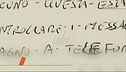 CUNO QUESTA ESTA
CONTROLLARE I MESSA
AGNO. A TELEFON